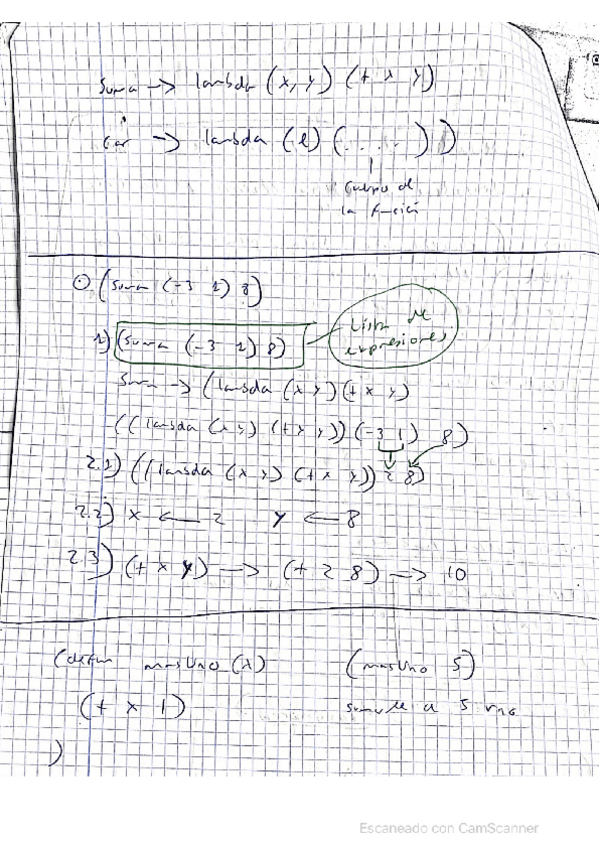 Suma -> lambda (x, y) (+ x y)
Car -> lambda (l) (.....))
cuerpo de
la función
⊙ (suma (-3 1) 8)
1) (suma (-3 1) 8)
Lista de
expresiones
Suma -> (lambda (x y) (+ x y)
((lambda (x y) (+ x y)) (-3 1) 8)
2.1) ((lambda (x y) (+ x y)) 2 8)
2.2) x <- 2 y <- 8
2.3) (+ x y) -> (+ 2 8) -> 10
(defun masUno (x) (masUno 5)
(+ x 1) sumarle a 5 uno
)
Escaneado con CamScanner